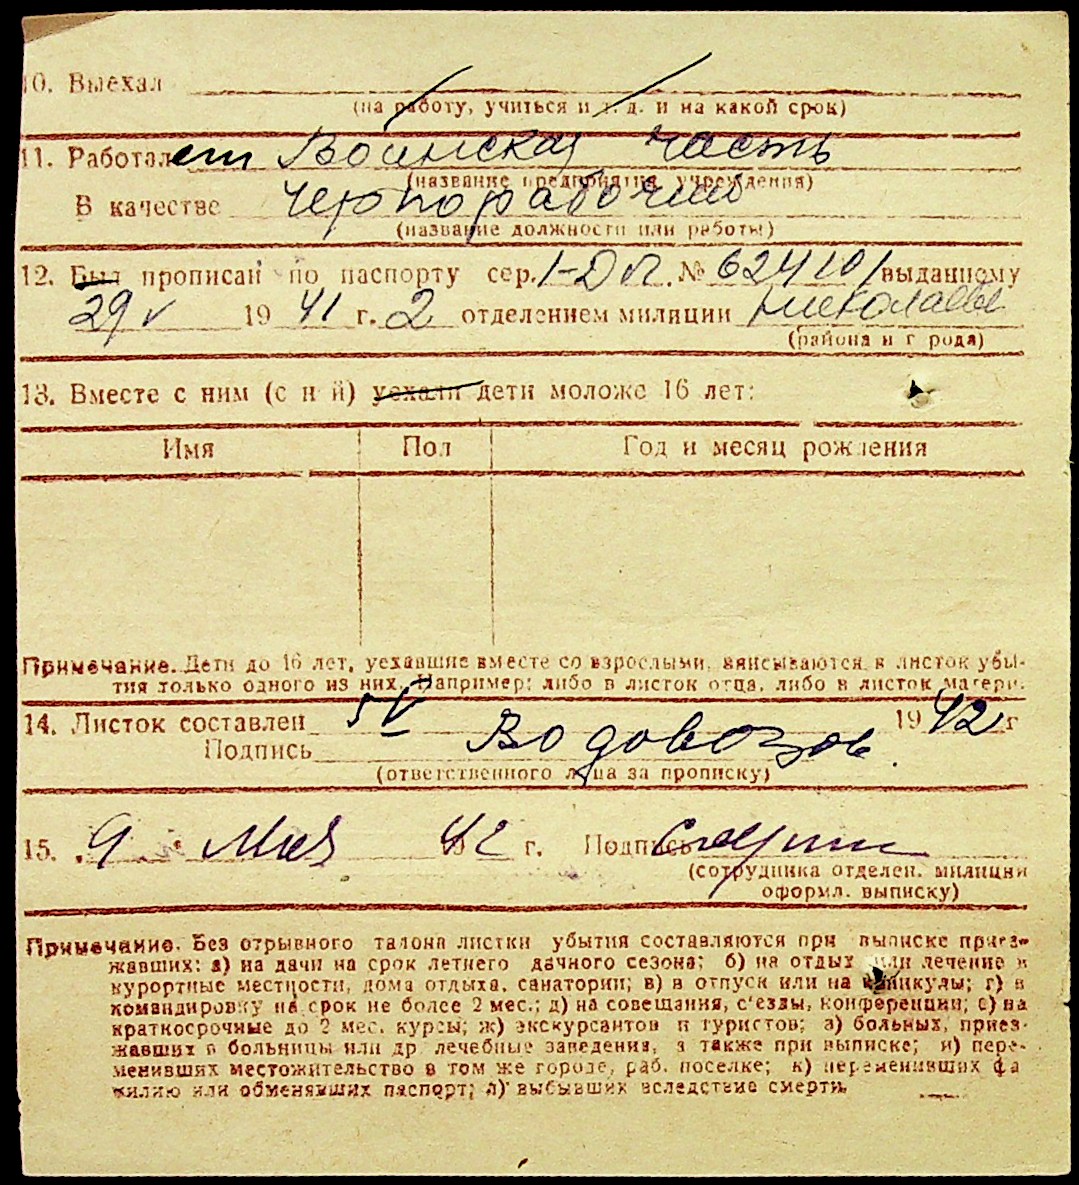 10. Выехал
(на работу, учиться и т. д. и на какой срок)
11. Работает Воинская часть
(название предприятия, учреждения)
В качестве чернорабочий
(название должности или работы)
12. Был прописан по паспорту сер. I-ДП. № 624101 выданному
29 V 1941 г. 2 отделением милиции Николаева
(района и города)
13. Вместе с ним (с ней) уехали дети моложе 16 лет:
Имя Пол Год и месяц рождения
Примечание. Дети до 16 лет, уехавшие вместе со взрослыми, вписываются в листок убы-
тия только одного из них. Например: либо в листок отца, либо в листок матери.
14. Листок составлен 5 V 1942 г
Подпись Водовозов.
(ответственного лица за прописку)
15. 9 Мая 42 г. Подпись
(сотрудника отделен. милиции
оформл. выписку)
Примечание. Без отрывного талона листки убытия составляются при выписке приез-
жавших: а) на дачи на срок летнего дачного сезона; б) на отдых или лечение в
курортные местности, дома отдыха, санатории; в) в отпуск или на каникулы; г) в
командировку на срок не более 2 мес.; д) на совещания, с'езды, конференции; е) на
краткосрочные до 2 мес. курсы; ж) экскурсантов и туристов; з) больных, приез-
жавших в больницы или др лечебные заведения, а также при выписке; и) пере-
менивших местожительство в том же городе, раб. поселке; к) переменивших фа
милию или обменявших паспорт; л) выбывших вследствие смерти.